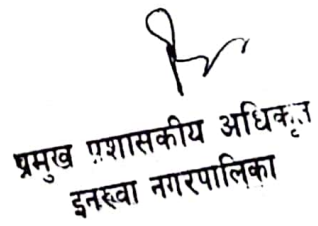 प्रमुख प्रशासकीय अधिकृत
इनरुवा नगरपालिका